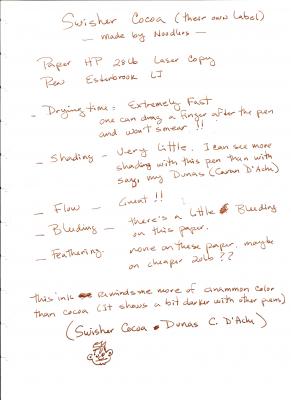 Swisher Cocoa (their own label)
— made by Noodlers —
Paper HP 28lb Laser Copy
Pen Esterbrook LJ
— Drying time: Extremely Fast
one can drag a finger after the pen
and won't smear !!
— Shading — Very little. I can see more
shading with this pen than with
say, my Dunas (Caran D'Ache)
— Flow — Great !!
— Bleeding — there's a little Bleeding
on this paper.
— Feathering. none on these paper. maybe
on cheaper 20lb ??
this ink reminds me more of cinammon color
than cocoa (It shows a bit darker with other pens)
(Swisher Cocoa • Dunas C. D'Ache)